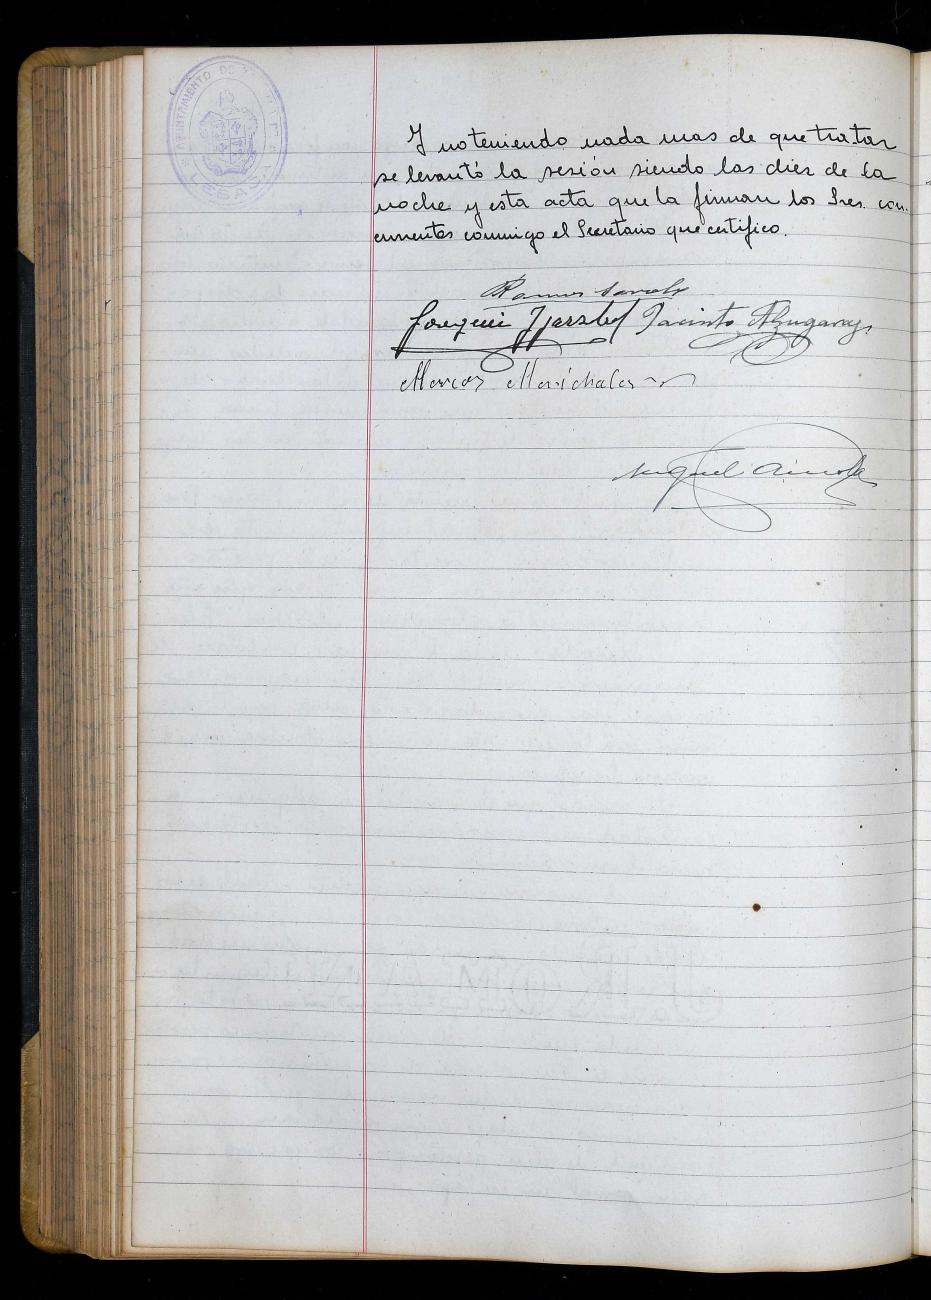 AYUNTAMIENTO DE
LESACA
Y no teniendo nada mas de que tratar
se levantó la sesión siendo las diez de la
noche y esta acta que la firman los Sres. con-
currentes conmigo el Secretario que certifico.
Ramon
Joaquin Jacinto
Marcos Marichalar
Miguel